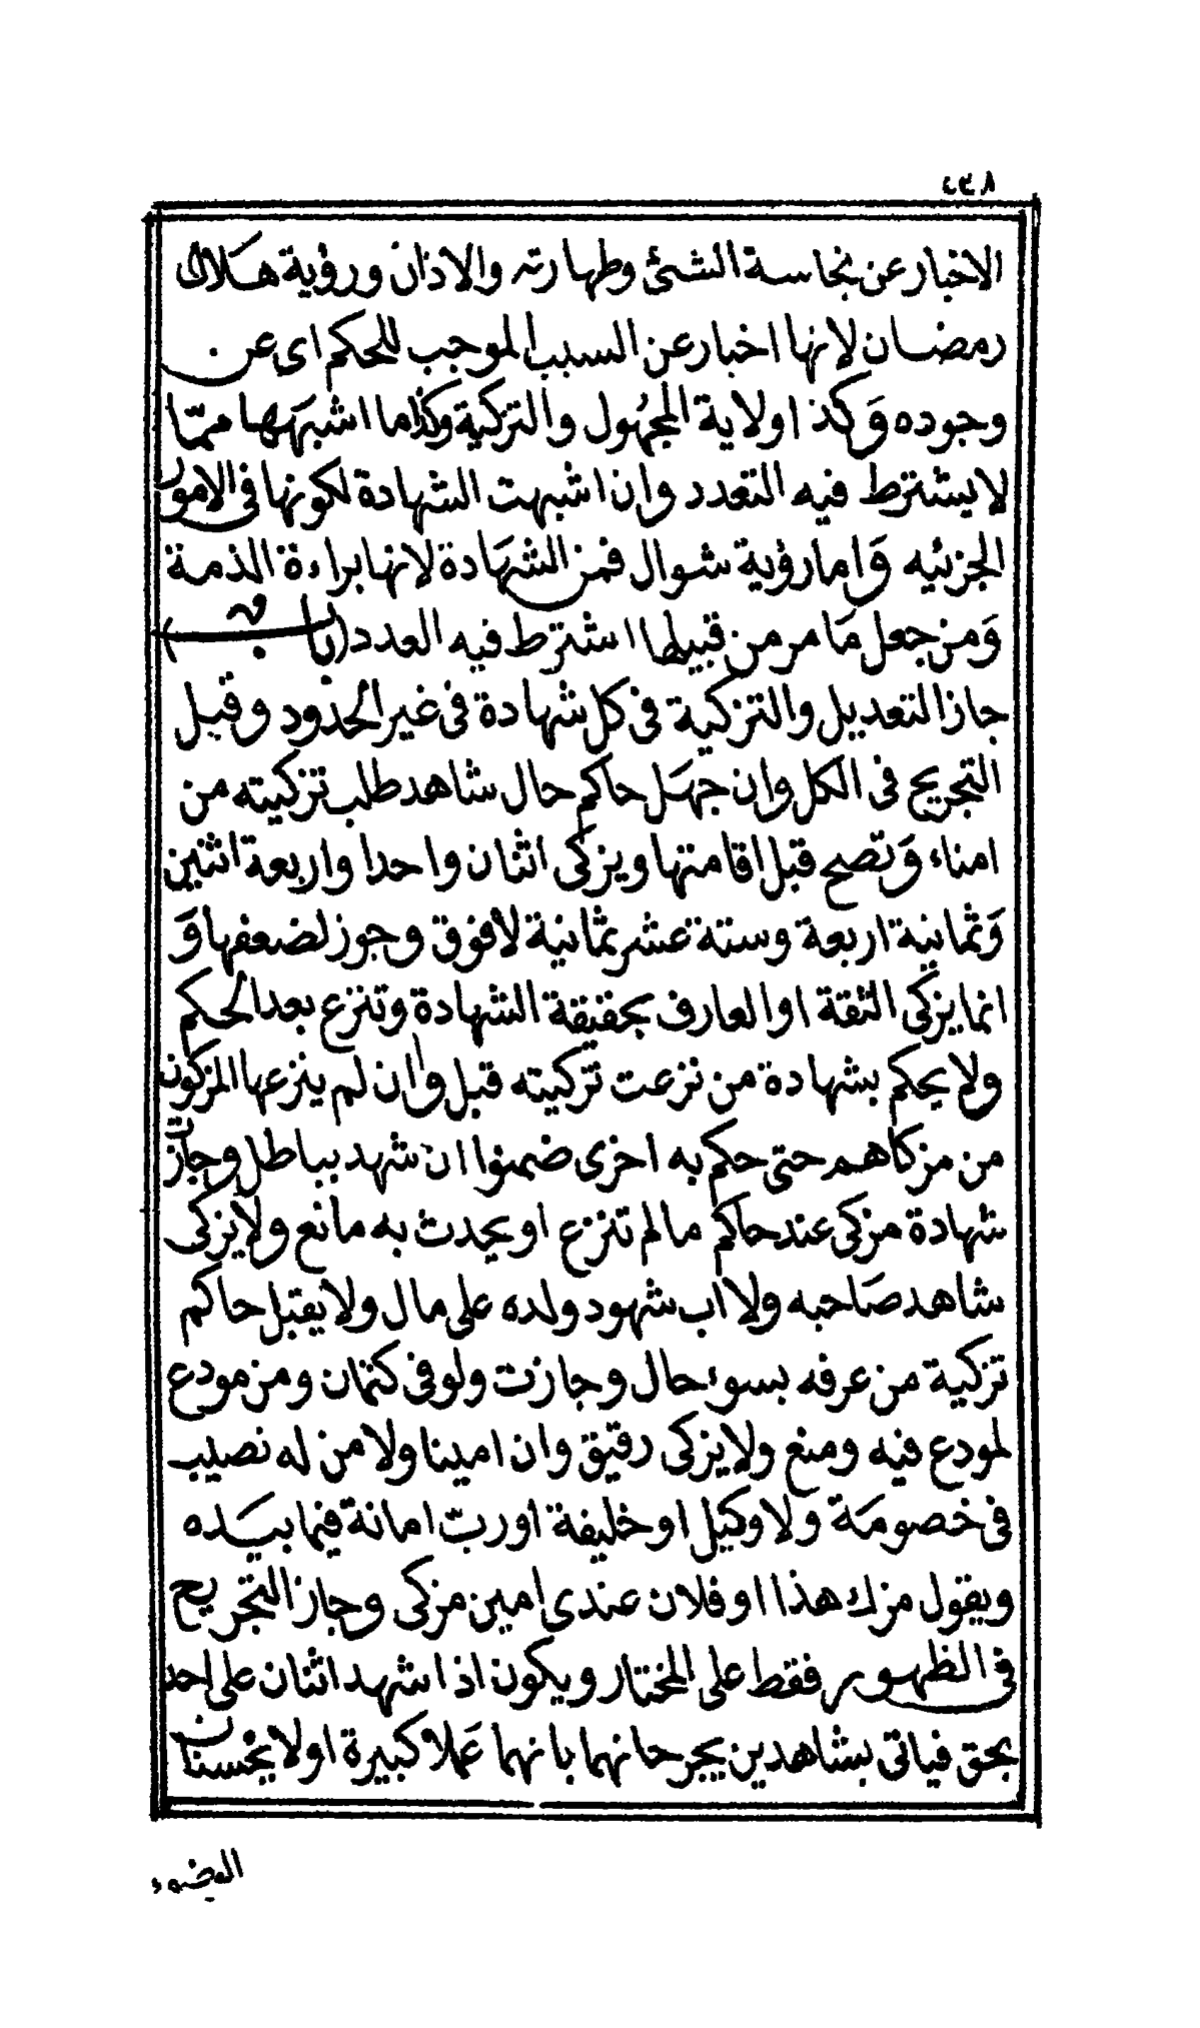 ٤٣٨
الاخبار عن نجاسة الشئ وطهارته والاذان ورؤية هلال
رمضان لانها اخبار عن السبب الموجب للحكم اى عن
وجوده وَكذا ولاية المجهُول والتزكية وكذا ما اشبهَها ممّا
لا يشترط فيه التعدد وان اشبهت الشهادة لكونها فى الامور
الجزئيه وَاما رؤية شوال فمن الشهَادة لانها براءة الذمة
وَمن جعل مَا مر من قبيلها اشترط فيه العدد (باب)
جاز التعديل والتزكية فى كل شهادة فى غير الحدود وقبل
التجريح فى الكل وان جهَل حاكم حال شاهد طلب تزكيته من
امناء وَتصح قبل اقامتها ويزكى اثنان واحدا واربعة اثنين
وَثمانية اربعة وستة عشر ثمانية لا فوق وجوز لضعفها وَ
انما يزكى الثقة او العارف بحقيقة الشهادة وتنزع بعد الحكم
ولا يحكم بشهادة من نزعت تزكيته قبل وان لم ينزعها المزكون
من مزكاهم حتى حكم به اخرى ضمنوا ان شهد بباطل وجازت
شهادة مزكى عند حاكم ما لم تنزع او يحدث به مانع ولا يزكى
شاهد صَاحبه ولا اب شهود ولده على مال ولا يقبل حاكم
تزكية من عرفه بسوء حال وجازت ولو فى كتمان ومن مودع
لمودع فيه ومنع ولا يزكى رقيق وان امينا ولا من له نصيب
فى خصومَة ولا وكيل او خليفة او ربّ امانة فيما بيَده
ويقول مزك هذا او فلان عندى امين مزكى وجاز التجريح
فى الظهور فقط على المختار ويكون اذا شهد اثنان على احد
بحق فياتى بشاهدين يجرحانهما بانهما عَملا كبيرة او لا يحْسنان
الوضوء